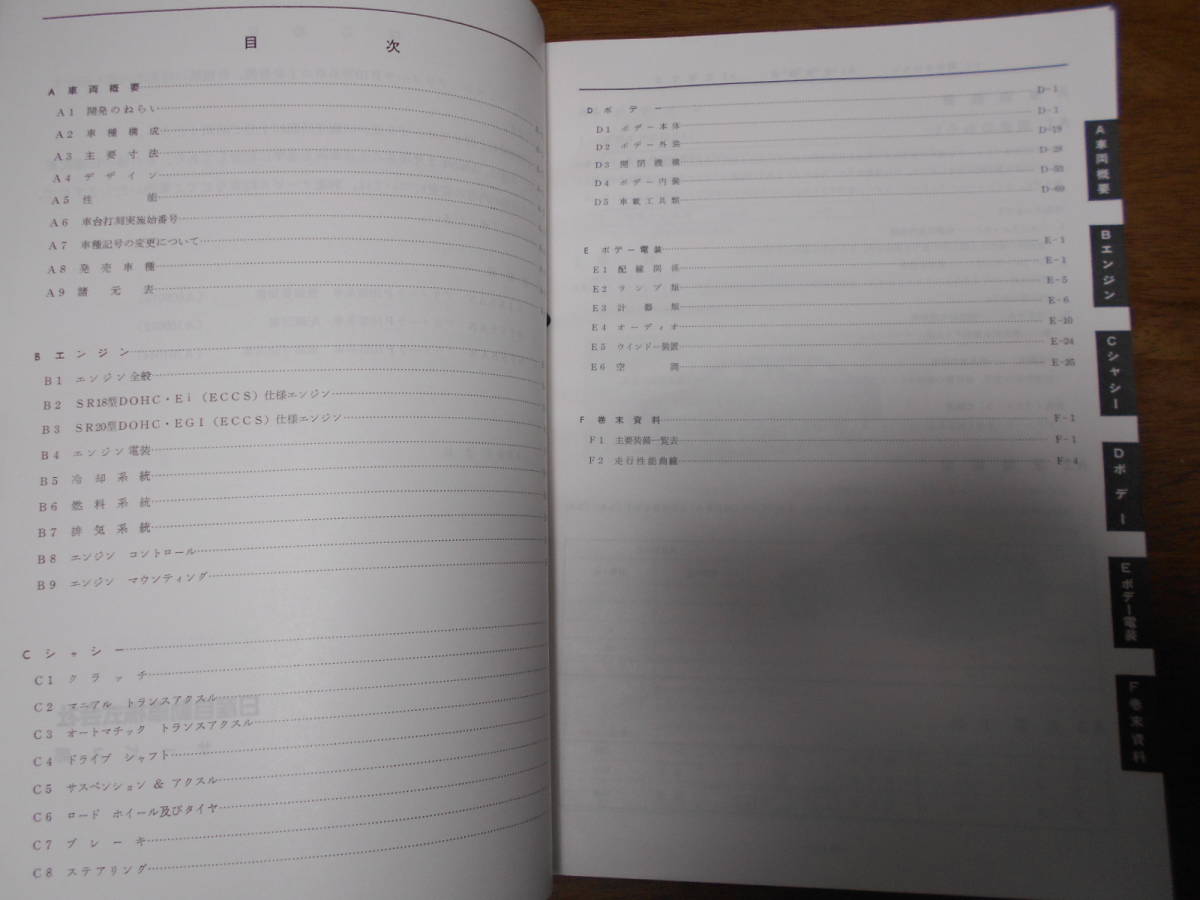 目 次
A 車両概要
A1 開発のねらい
A2 車種構成
A3 主要寸法
A4 デザイン
A5 性 能
A6 車台打刻実施始番号
A7 車種記号の変更について
A8 発売車種
A9 諸元表
B エンジン
B1 エンジン全般
B2 SR18型DOHC・Ei(ECCS)仕様エンジン
B3 SR20型DOHC・EGI(ECCS)仕様エンジン
B4 エンジン電装
B5 冷却系統
B6 燃料系統
B7 排気系統
B8 エンジン コントロール
B9 エンジン マウンティング
C シャシー
C1 クラッチ
C2 マニアル トランスアクスル
C3 オートマチック トランスアクスル
C4 ドライブ シャフト
C5 サスペンション & アクスル
C6 ロード ホイール及びタイヤ
C7 ブレーキ
C8 ステアリング
D ボデー D-1
D1 ボデー本体 D-1
D2 ボデー外装 D-19
D3 開閉機構 D-28
D4 ボデー内装
D5 車載工具類 D-69
E ボデー電装 E-1
E1 配線関係 E-1
E2 ランプ類 E-5
E3 計器類 E-6
E4 オーディオ E-10
E5 ウインドー装置 E-24
E6 空調 E-25
F 巻末資料 F-1
F1 主要装備一覧表 F-1
F2 走行性能曲線 F-4
A車両概要
Bエンジン
Cシャシー
Dボデー
Eボデー電装
F巻末資料